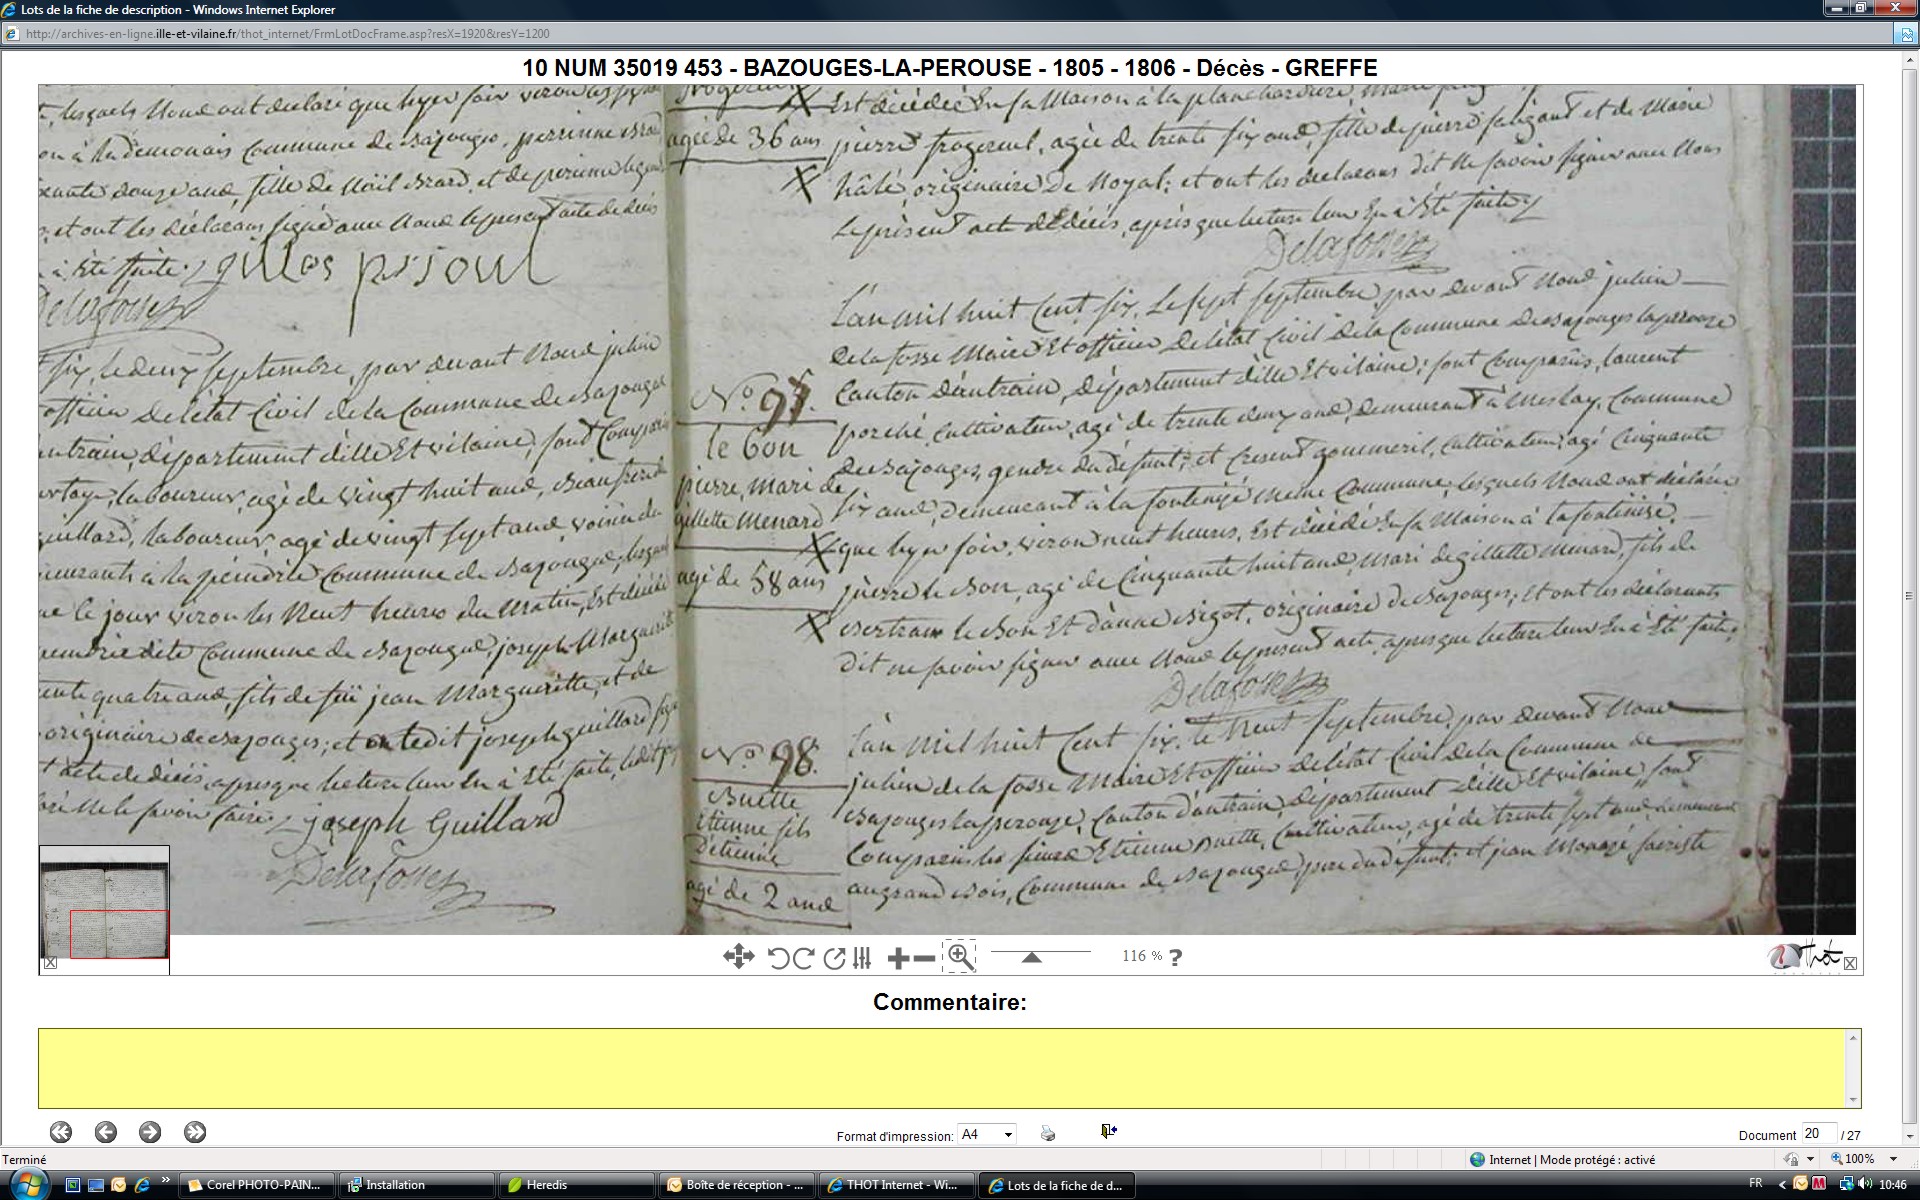 Lots de la fiche de description - Windows Internet Explorer
http://archives-en-ligne.ille-et-vilaine.fr/thot_internet/FrmLotDocFrame.asp?resX=1920&resY=1200
10 NUM 35019 453 - BAZOUGES-LA-PEROUSE - 1805 - 1806 - Décès - GREFFE
lesquels Nous ont déclaré que hyer soir viron les
commune de Bazouges, perrinne
douze ans, fille de Noël Erard, et de perinne
et ont les déclarans signé avec Nous le present acte de décès
à Été faite. gilles prjoul
Delafosse
six, le deux septembre, par devant Nous julien
officier de l'état Civil de la Commune de Bazouges
département d'ille Et vilaine, sont Comparu
laboureur, agé de vingt huit ans, Beaufrere
guillard, laboureur, agé de vingt sept ans, voisin du
Commune de Bazouges, lesquels
le jour viron les Neuf heures du Matin, Est décédé
Commune de Bazouges, joseph Margueritte
quatre ans, fils de feu jean Margueritte, et de
originaire de Bazouges; et ont ledit joseph guillard
acte de décès, apres que lecture leur En à Été faite, ledit
Ne le savoir faire. joseph Guillard
Delafosse
agée de 36 ans
X
Est décédée En sa Maison à la planchardiere, Marie
pierre frogereul, agée de trente six ans, fille de pierre et de Marie
hâlé, originaire de Noyal; et ont les déclarans dit Ne savoir signer avec Nous
Le présent acte de décès, après que lecture leur En à Été faite
Delafosse
No. 97.
le bon
pierre, mari de
gillette Menard
X
agé de 58 ans
X
L'an mil huit Cent six, Le sept septembre, par devant Nous julien
de la fosse Maire Et officier de l'état Civil de la Commune de Bazouges laperouse
Canton d'antrain, département d'ille Et vilaine; sont Comparus, laurent
porché, cultivateur, agé de trente deux ans, demeurant à Meslay, Commune
de Bazouges, gendre du défunt; et Cresent gommeril, cultivateur, agé Cinquante
six ans, demeurant à la fontenizé meme Commune, lesquels Nous ont déclaré
que hyer soir, viron neuf heures, Est décédé En sa Maison à la fontinizé,
pierre le Bon, agé de Cinquante huit ans, mari de gillette Menard, fils de
Bertram le Bon Et d'anne Bigot, originaire de Bazouges; Et ont les déclarants
dit ne savoir signer avec Nous le present acte, apres que lecture leur En à Été faite;
Delafosse
No. 98.
Buette
Etienne fils
D'etienne
agé de 2 ans
L'an mil huit Cent six, le Neuf septembre, par devant Nous
julien de la fosse Maire Et officier de l'état Civil de la Commune de
Bazouges laperouze, Canton d'antrain, département d'ille Et vilaine sont
Comparus les sieurs Etienne Buette, Cultivateur, agé de trente sept ans, demeurant
au grand Bois, Commune de Bazouges, pere du défunt; et jean
116 %
?
Thot
Commentaire:
Format d'impression: A4
Document 20 / 27
Terminé
Internet | Mode protégé : activé
100%
Corel PHOTO-PAIN...
Installation
Heredis
Boîte de réception - ...
THOT Internet - Wi...
Lots de la fiche de d...
FR
10:46